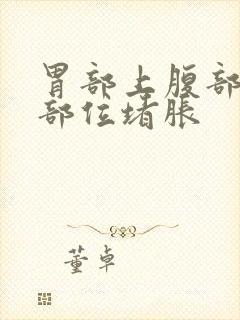 胃部上腹部
部位堵胀
董卓